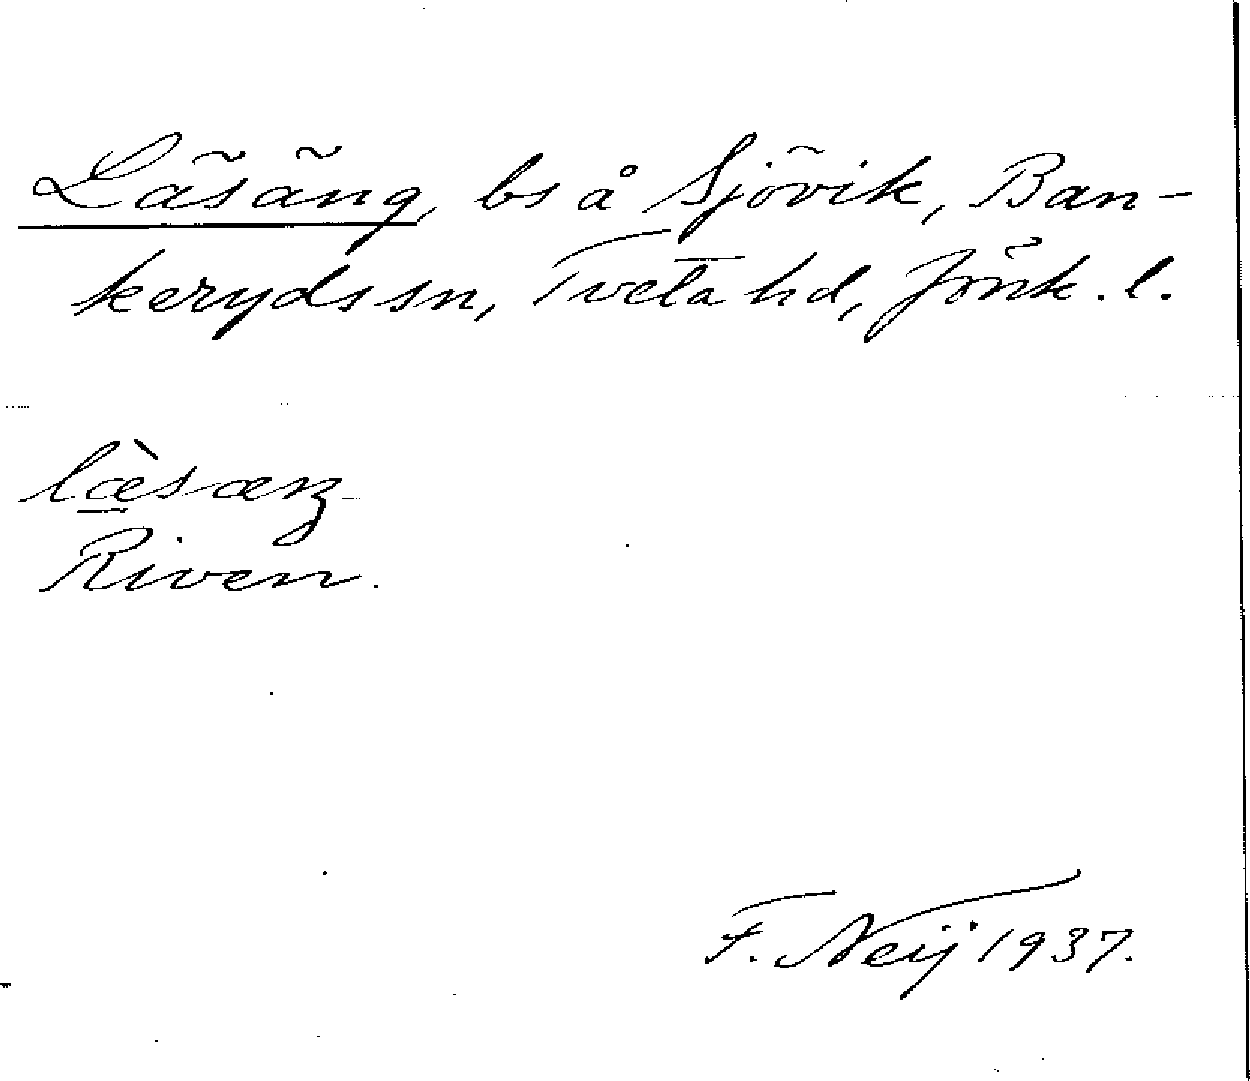 Läsäng, bs å Sjövik, Ban-
keryds sn, Tveta hd, Jönk. l.
læ̠̀sæŋ
Riven.
F. Neij 1937.